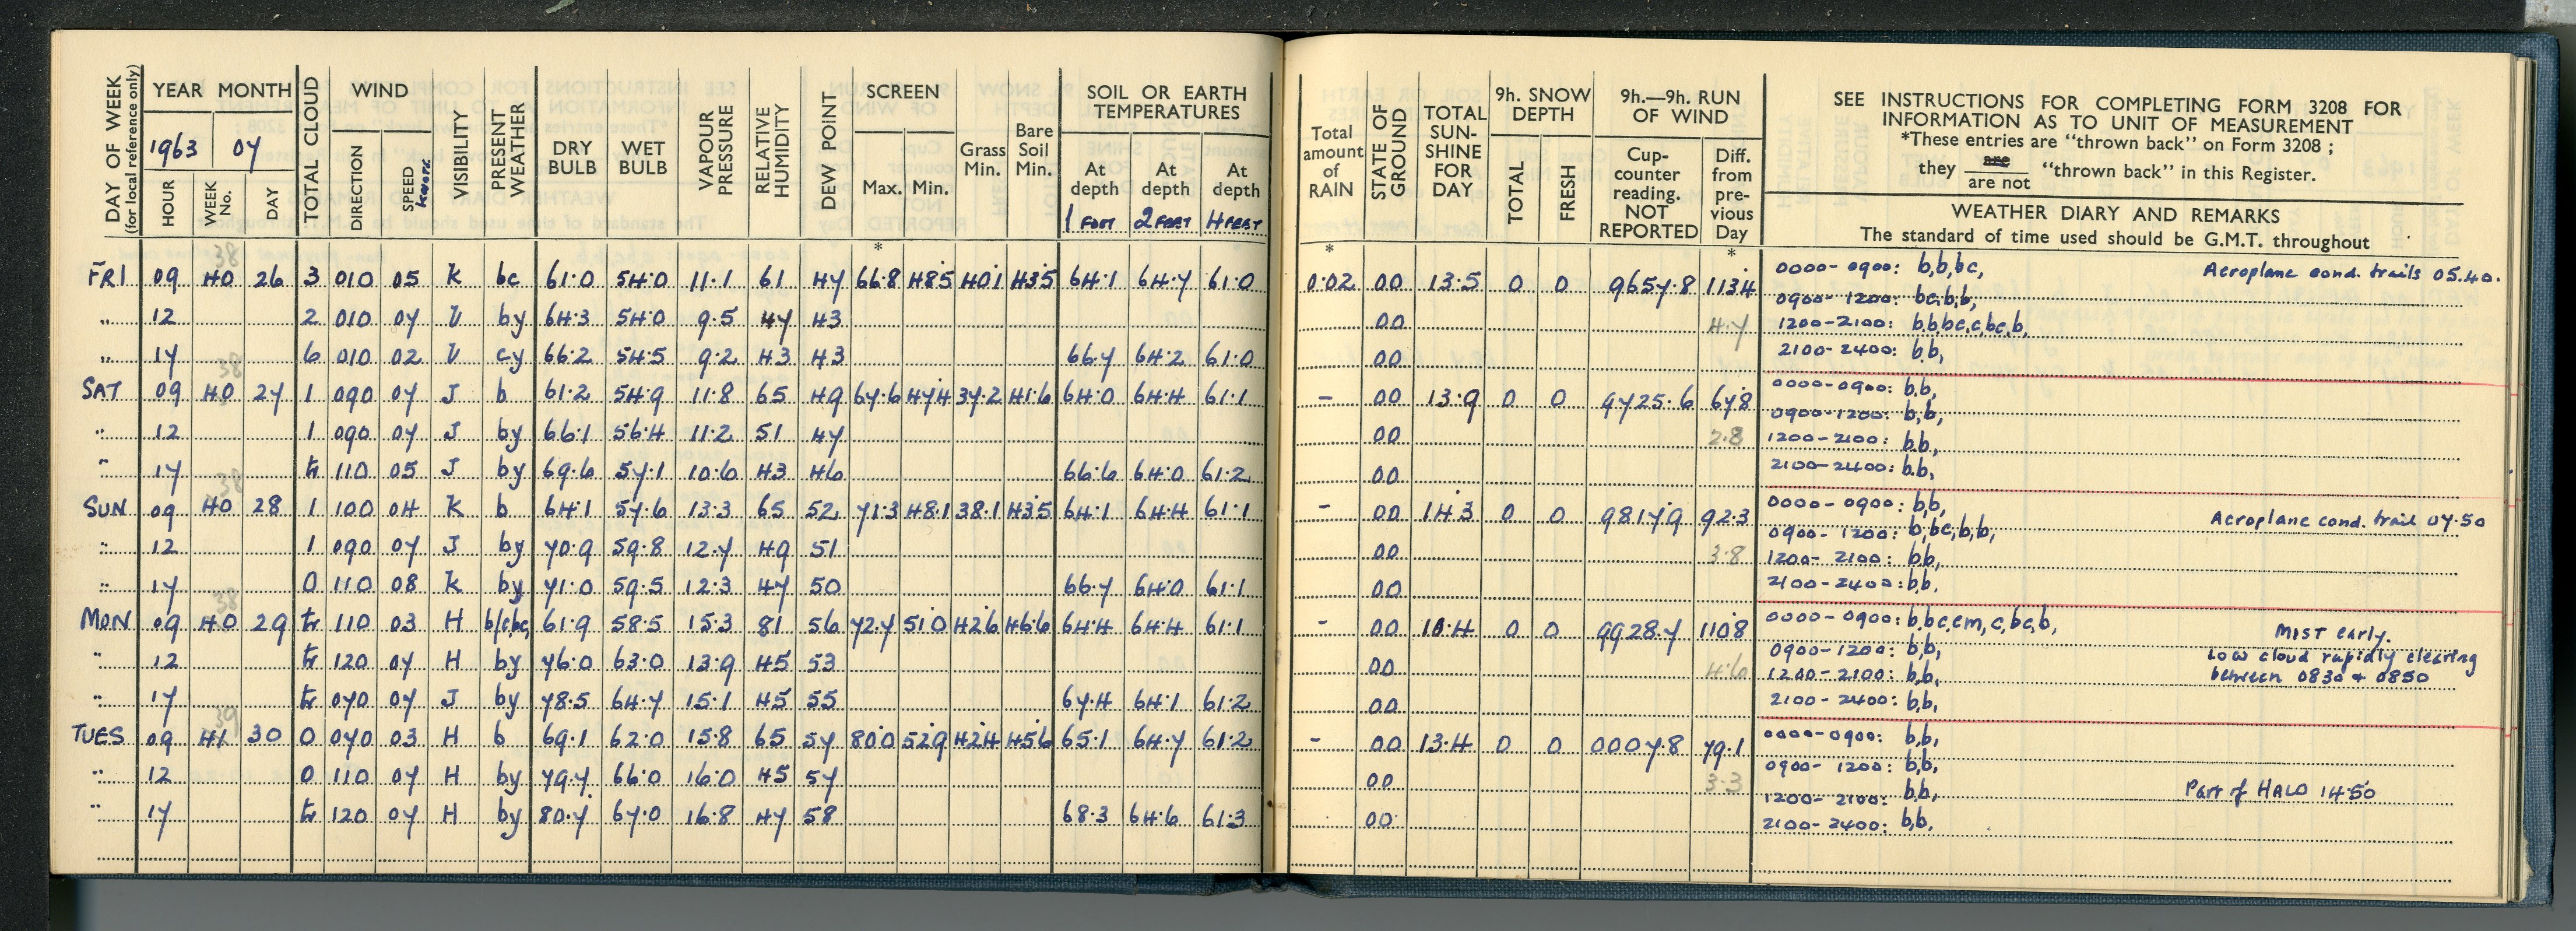 DAY OF WEEK (for local reference only) YEAR MONTH TOTAL CLOUD WIND VISIBILITY PRESENT WEATHER DRY BULB WET BULB VAPOUR PRESSURE RELATIVE HUMIDITY DEW POINT SCREEN Grass Min. Bare Soil Min. SOIL OR EARTH TEMPERATURES
1963 07
HOUR WEEK No. DAY DIRECTION SPEED Max. Min. At depth At depth At depth
1 FOOT 2 FEET 4 FEET
Total amount of RAIN STATE OF GROUND TOTAL SUN-SHINE FOR DAY 9h. SNOW DEPTH 9h.—9h. RUN OF WIND
TOTAL FRESH Cup-counter reading. NOT REPORTED Diff. from pre-vious Day
SEE INSTRUCTIONS FOR COMPLETING FORM 3208 FOR
INFORMATION AS TO UNIT OF MEASUREMENT
*These entries are "thrown back" on Form 3208 ;
they are / are not "thrown back" in this Register.
WEATHER DIARY AND REMARKS
The standard of time used should be G.M.T. throughout
* * *
38
FRI 09 40 26 3 010 05 K bc 61.0 54.0 11.1 61 47 66.8 48.5 40.1 43.5 64.1 64.7 61.0 0.02 00 13.5 0 0 9657.8 113.4 0000-0900: b,b,bc, Aeroplane cond. trails 05.40.
0900-1200: bc,b,b,
" 12 2 010 07 U by 64.3 54.0 9.5 47 43 00 4.7 1200-2100: b,b,bc,c,bc,b,
" 17 6 010 02 U cy 66.2 54.5 9.2 43 43 66.7 64.2 61.0 00 2100-2400: b.b,
38
SAT 09 40 27 1 090 07 J b 61.2 54.9 11.8 65 49 67.6 47.4 37.2 41.6 64.0 64.4 61.1 - 00 13.9 0 0 9725.6 67.8 0000-0900: b,b,
0900-1200: b,b,
" 12 1 090 07 J by 66.1 56.4 11.2 51 47 00 2.8 1200-2100: b.b,
" 17 tr 110 05 J by 69.6 57.1 10.6 43 46 66.6 64.0 61.2 00 2100-2400: b.b,
38
SUN 09 40 28 1 100 04 K b 64.1 57.6 13.3 65 52 71.3 48.1 38.1 43.5 64.1 64.4 61.1 - 00 14.3 0 0 9817.9 92.3 0000-0900: b,b, Aeroplane cond. trail 07.50
0900-1200: b,bc,b,b,
" 12 1 090 07 J by 70.9 59.8 12.7 49 51 00 3.8 1200-2100: b,b,
" 17 0 110 08 K by 71.0 59.5 12.3 47 50 66.7 64.0 61.1 00 2100-2400: b,b,
38
MON 09 40 29 tr 110 03 H b/c,bc, 61.9 58.5 15.3 81 56 72.7 51.0 42.6 46.6 64.4 64.4 61.1 - 00 0 0 9928.7 110.8 0000-0900: b,bc,cm,c,bc,b, MIST early.
0900-1200: b,b, Low cloud rapidly clearing
" 12 tr 120 07 H by 76.0 63.0 13.9 45 53 00 4.6 1200-2100: b,b, between 0830 + 0850
" 17 tr 070 07 J by 78.5 64.7 15.1 45 55 67.4 64.1 61.2 00 2100-2400: b,b,
39
TUES 09 41 30 0 070 03 H b 69.1 62.0 15.8 65 57 80.0 52.9 42.4 45.6 65.1 64.7 61.2 - 00 13.4 0 0 0007.8 79.1 0000-0900: b,b,
0900-1200: b,b,
" 12 0 110 07 H by 79.7 66.0 16.0 45 57 00 3.3 1200-2100: b.b, Part of HALO 14.50
" 17 tr 120 07 H by 80.7 67.0 16.8 47 58 68.3 64.6 61.3 00 2100-2400: b,b,